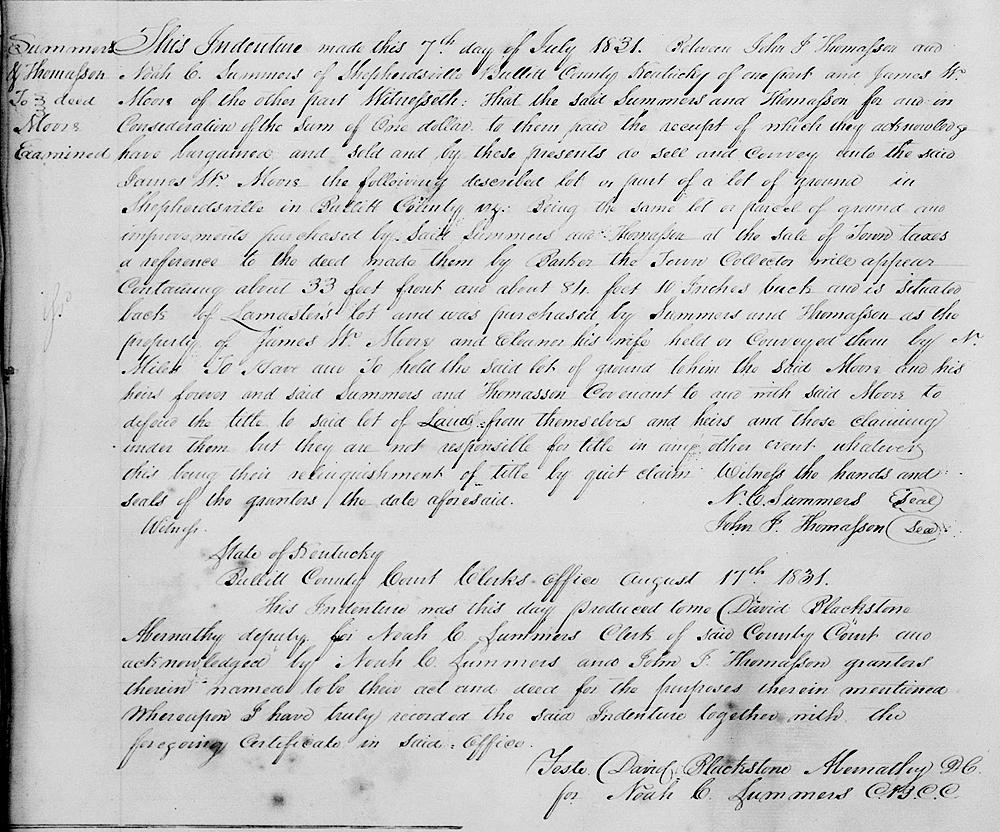 Summers
& Thomasson
To deed
Moore
Examined
This Indenture made this 7th day of July 1831. Between John F Thomasson and
Noah C. Summers of Shepherdsville Bullitt County Kentucky of one part and James W.
Moore of the other part Witnesseth: That the said Summers and Thomasson for and in
Consideration of the Sum of One dollar to them paid the receipt of which they acknowledge
have bargained and sold and by these presents do sell and convey unto the said
James W. Moore the following described lot or part of a lot of ground in
Shepherdsville in Bullitt County viz: Being the same lot or parcel of ground and
improvements purchased by said Summers and Thomasson at the sale of Town taxes
a reference to the deed made them by Barker the Town Collector will appear
Containing about 33 feet front and about 84 feet 10 Inches back and is situated
back of Lamasters lot and was purchased by Summers and Thomasson as the
property of James W. Moore and Eleanor his wife held or Conveyed them by N.
Miles To Have and To hold the said lot of ground to him the said Moore and his
heirs forever and said Summers and Thomasson Covenant to and with said Moore to
defend the title to said lot of Land from themselves and heirs and those claiming
under them but they are not responsible for title in any other event whatever
this being their relinquishment of title by quit claim Witness the hands and
seals of the grantors the date aforesaid.
N. C. Summers (Seal)
Witness.
John F. Thomasson (Seal)
State of Kentucky
Bullitt County Court Clerks office August 17th 1831.
This Indenture was this day produced to me David Blackstone
Abernathy deputy for Noah C. Summers Clerk of said County Court and
acknowledged by Noah C. Summers and John F. Thomasson grantors
therein named to be their act and deed for the purposes therein mentioned
Whereupon I have truly recorded the said Indenture together with the
foregoing Certificate in said office.
Teste David Blackstone Abernathy D.C.
for Noah C. Summers C.B.C.C.